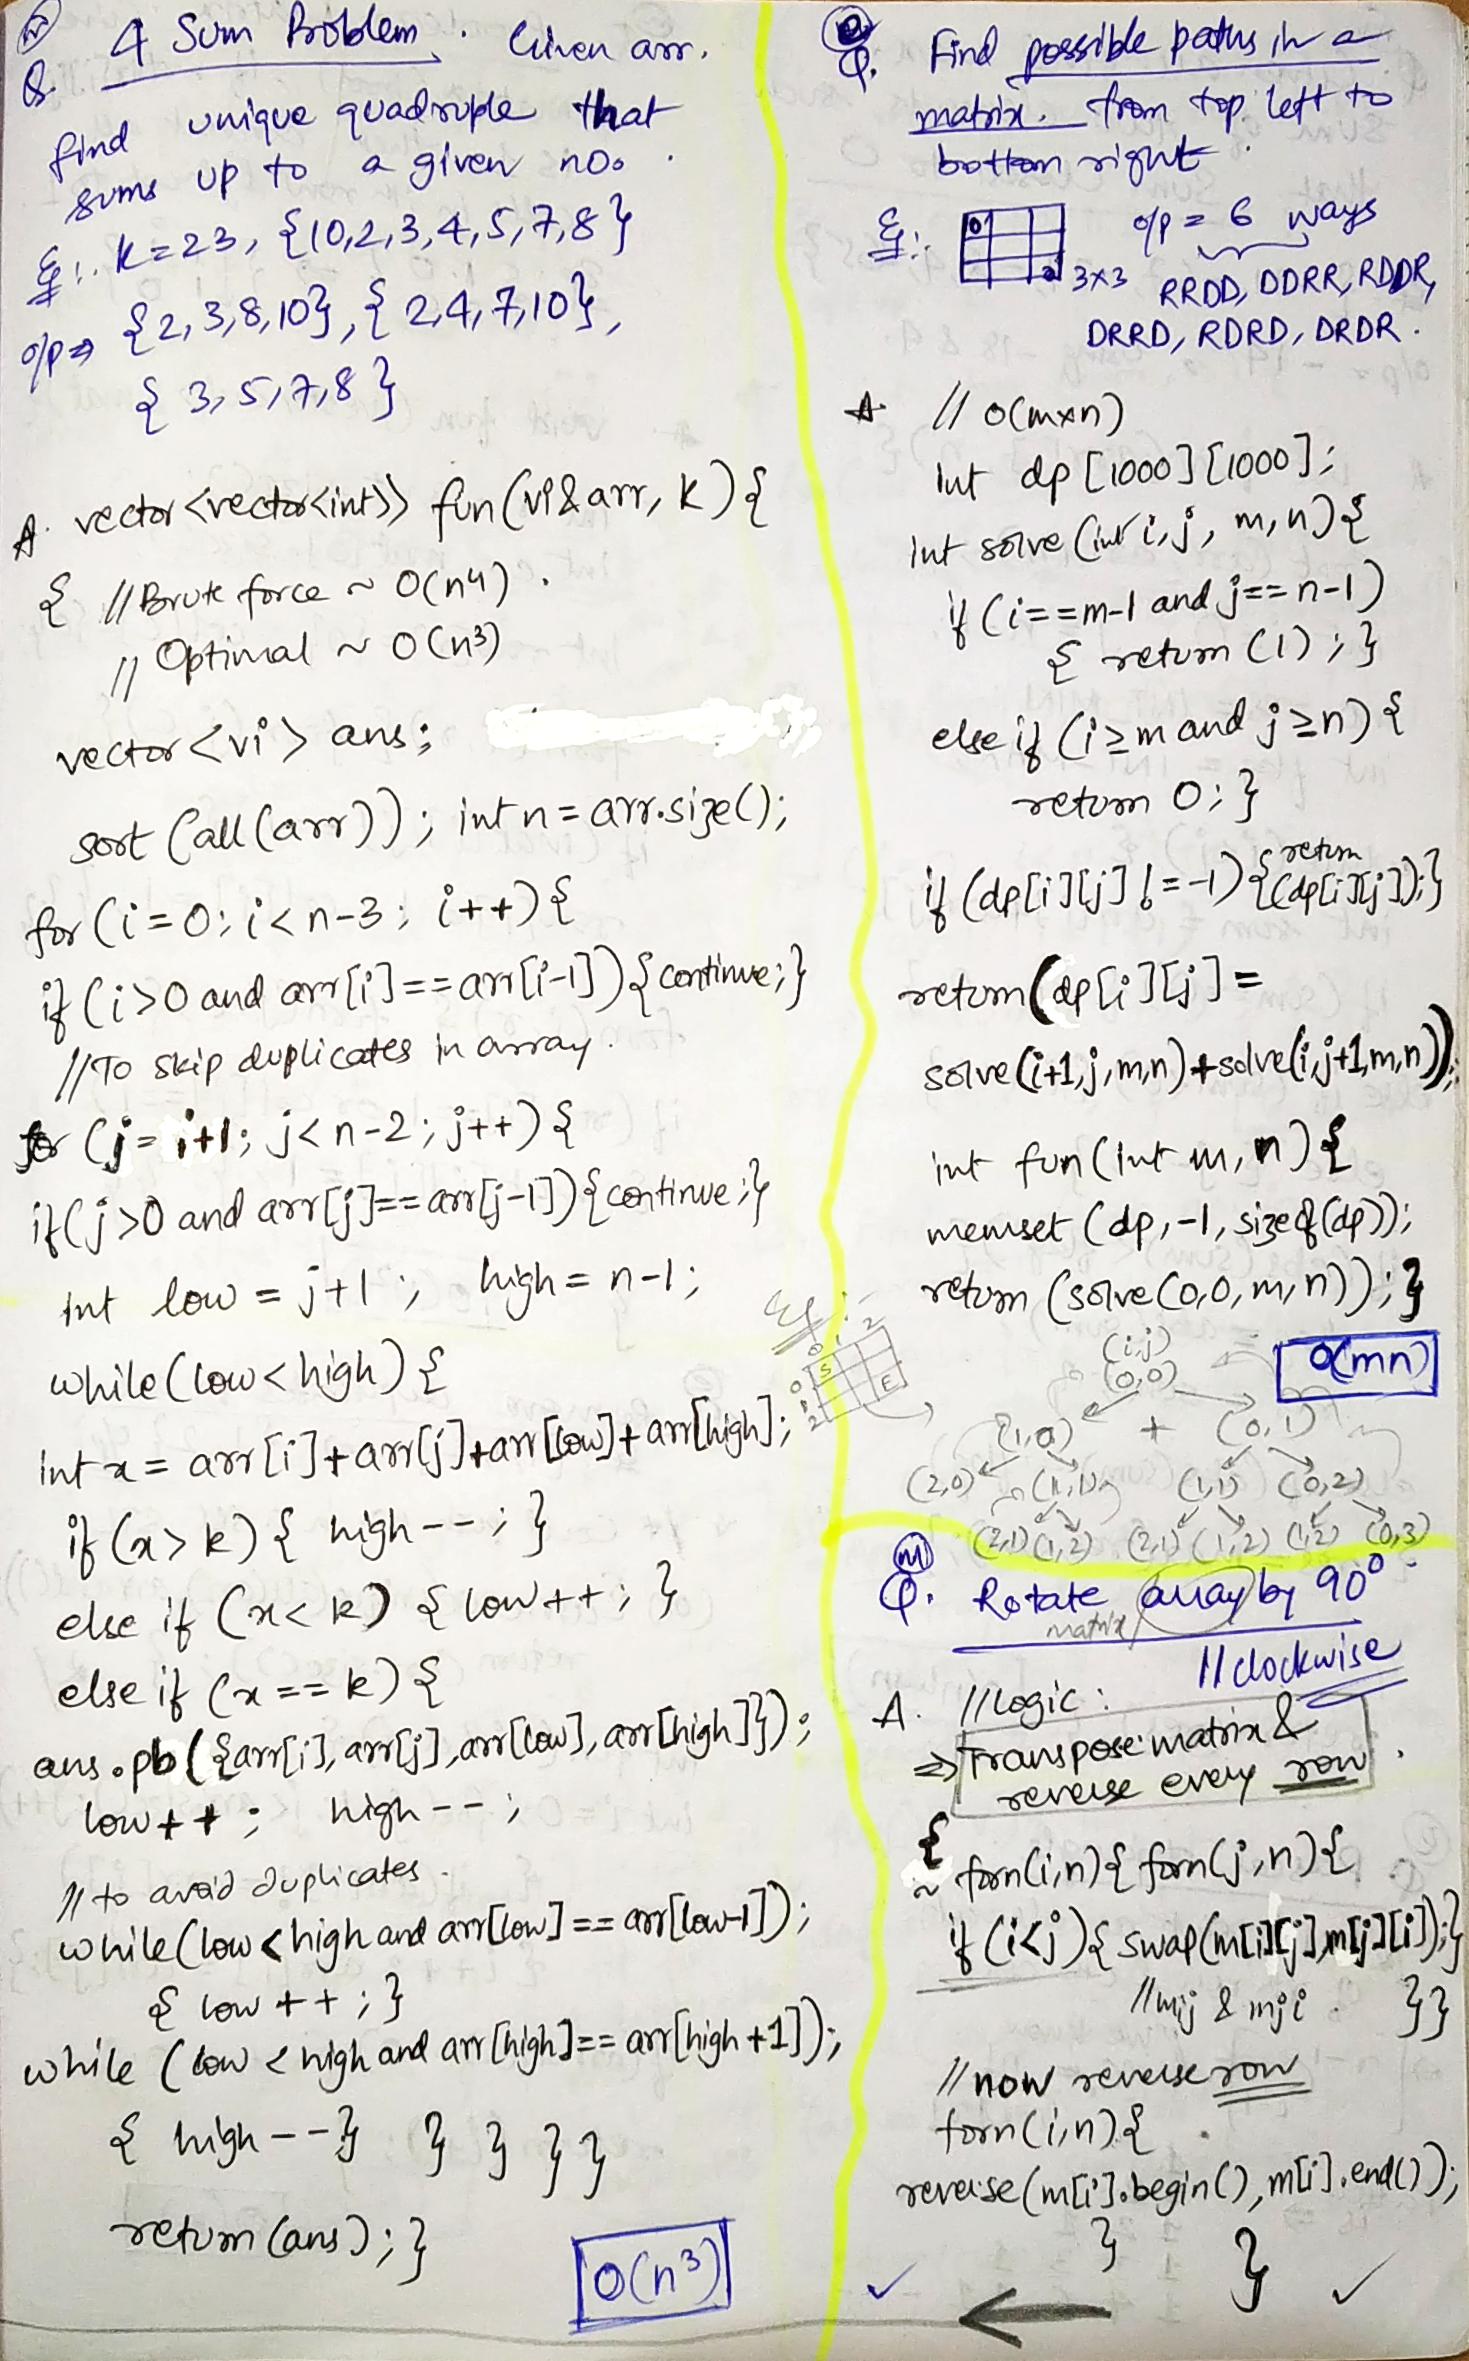 (M)
Q. 4 Sum Problem. Given arr.
find unique quadruple that
sums up to a given no.
Eg:. k=23, {10,2,3,4,5,7,8}
o/p⇒ {2,3,8,10}, {2,4,7,10},
{3,5,7,8}
A. vector<vector<int>> fun(vi&arr, k){
{ //Brute force ~ O(n4).
// Optimal ~ O(n³)
vector<vi> ans;
sort(all(arr)); int n=arr.size();
for(i=0; i<n-3; i++){
if(i>0 and arr[i]==arr[i-1]){continue;}
//To skip duplicates in array.
for (j=i+1; j<n-2; j++){
if(j>0 and arr[j]==arr[j-1]){continue;}
int low = j+1; high=n-1;
while(low<high){
int x= arr[i]+arr[j]+arr[low]+arr[high];
if (x>k) { high--; }
else if (x<k) { low++; }
else if (x==k) {
ans.pb({arr[i],arr[j],arr[low],arr[high]});
low++; high--;
// to avoid duplicates.
while(low<high and arr[low]==arr[low-1]);
{ low++;}
while (low<high and arr[high]==arr[high+1]);
{ high--} } } } }
return(ans);}
O(n³)
Q. Find possible paths in a
matrix. from top left to
bottom right.
Eg:. 3x3 o/p = 6 ways
RRDD, DDRR, RDDR,
DRRD, RDRD, DRDR.
A // O(mxn)
int dp[1000][1000];
int solve(int i,j, m,n){
if (i==m-1 and j==n-1)
{ return (1);}
else if (i≥m and j≥n){
return 0;}
if (dp[i][j]!=-1){return (dp[i][j]);}
return(dp[i][j]=
solve(i+1,j,m,n)+solve(i,j+1,m,n));
int fun(int m,n){
memset (dp,-1, sizeof(dp));
return (solve(0,0,m,n));}
O(mn)
Eg:.
0 1 2
0 S
1 E
2
(i,j)
(0,0)
(1,0) + (0,1)
(2,0) (1,1) (1,1) (0,2)
(2,1) (1,2) (2,1) (1,2) (1,2) (0,3)
(M)
Q. Rotate array by 90°
matrix
//clockwise
A. //Logic:
⇒ Transpose matrix &
reverse every row.
{
forn(i,n){ forn(j,n){
if (i<j){ swap(m[i][j],m[j][i]);}
//mij & mji. }}
//now reverse row
forn(i,n){
reverse(m[i].begin(),m[i].end());
} }